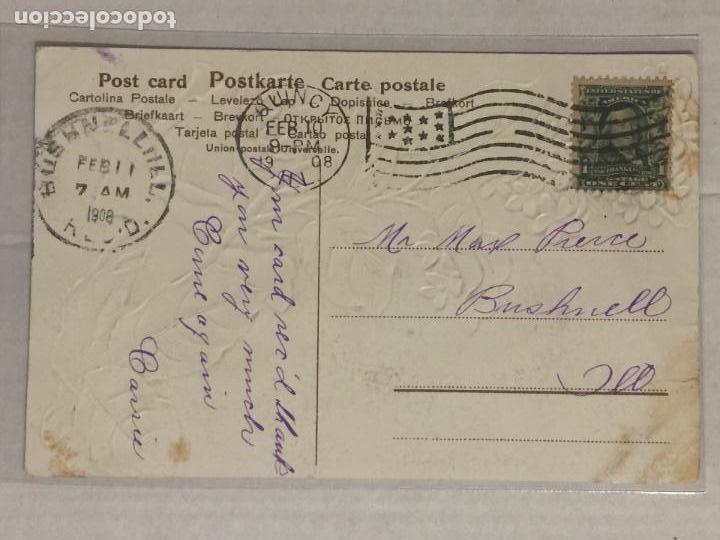 todocoleccion
Post card Postkarte Carte postale
Cartolina Postale – Levelező Lap – Dopisnice – Brefkort
Briefkaart – Brevkort – ОТКРЫТОЕ ПИСЬМО
Tarjeta postal – Cartao postal
Union postale Universelle.
BUSHNELL, ILL.
FEB 11
7 AM
1908
REC'D.
QUINCY
FEB 10
9 PM
1908
UNITED STATES OF
AMERICA
FRANKLIN
1
ONE CENT
Mr Max Pierce
Bushnell
Ill
Your card rec'd thank
You very much
Come again
Carrie